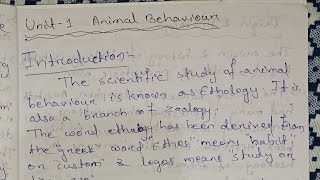 Unit-1 Animal Behaviour
Introduction-
The scientific study of animal
behaviour is known as Ethology. It is
also a branch of zoology.
The word ethology has been derived from
the "greek" word Ethos" means 'habit'
or custom & logos means study or